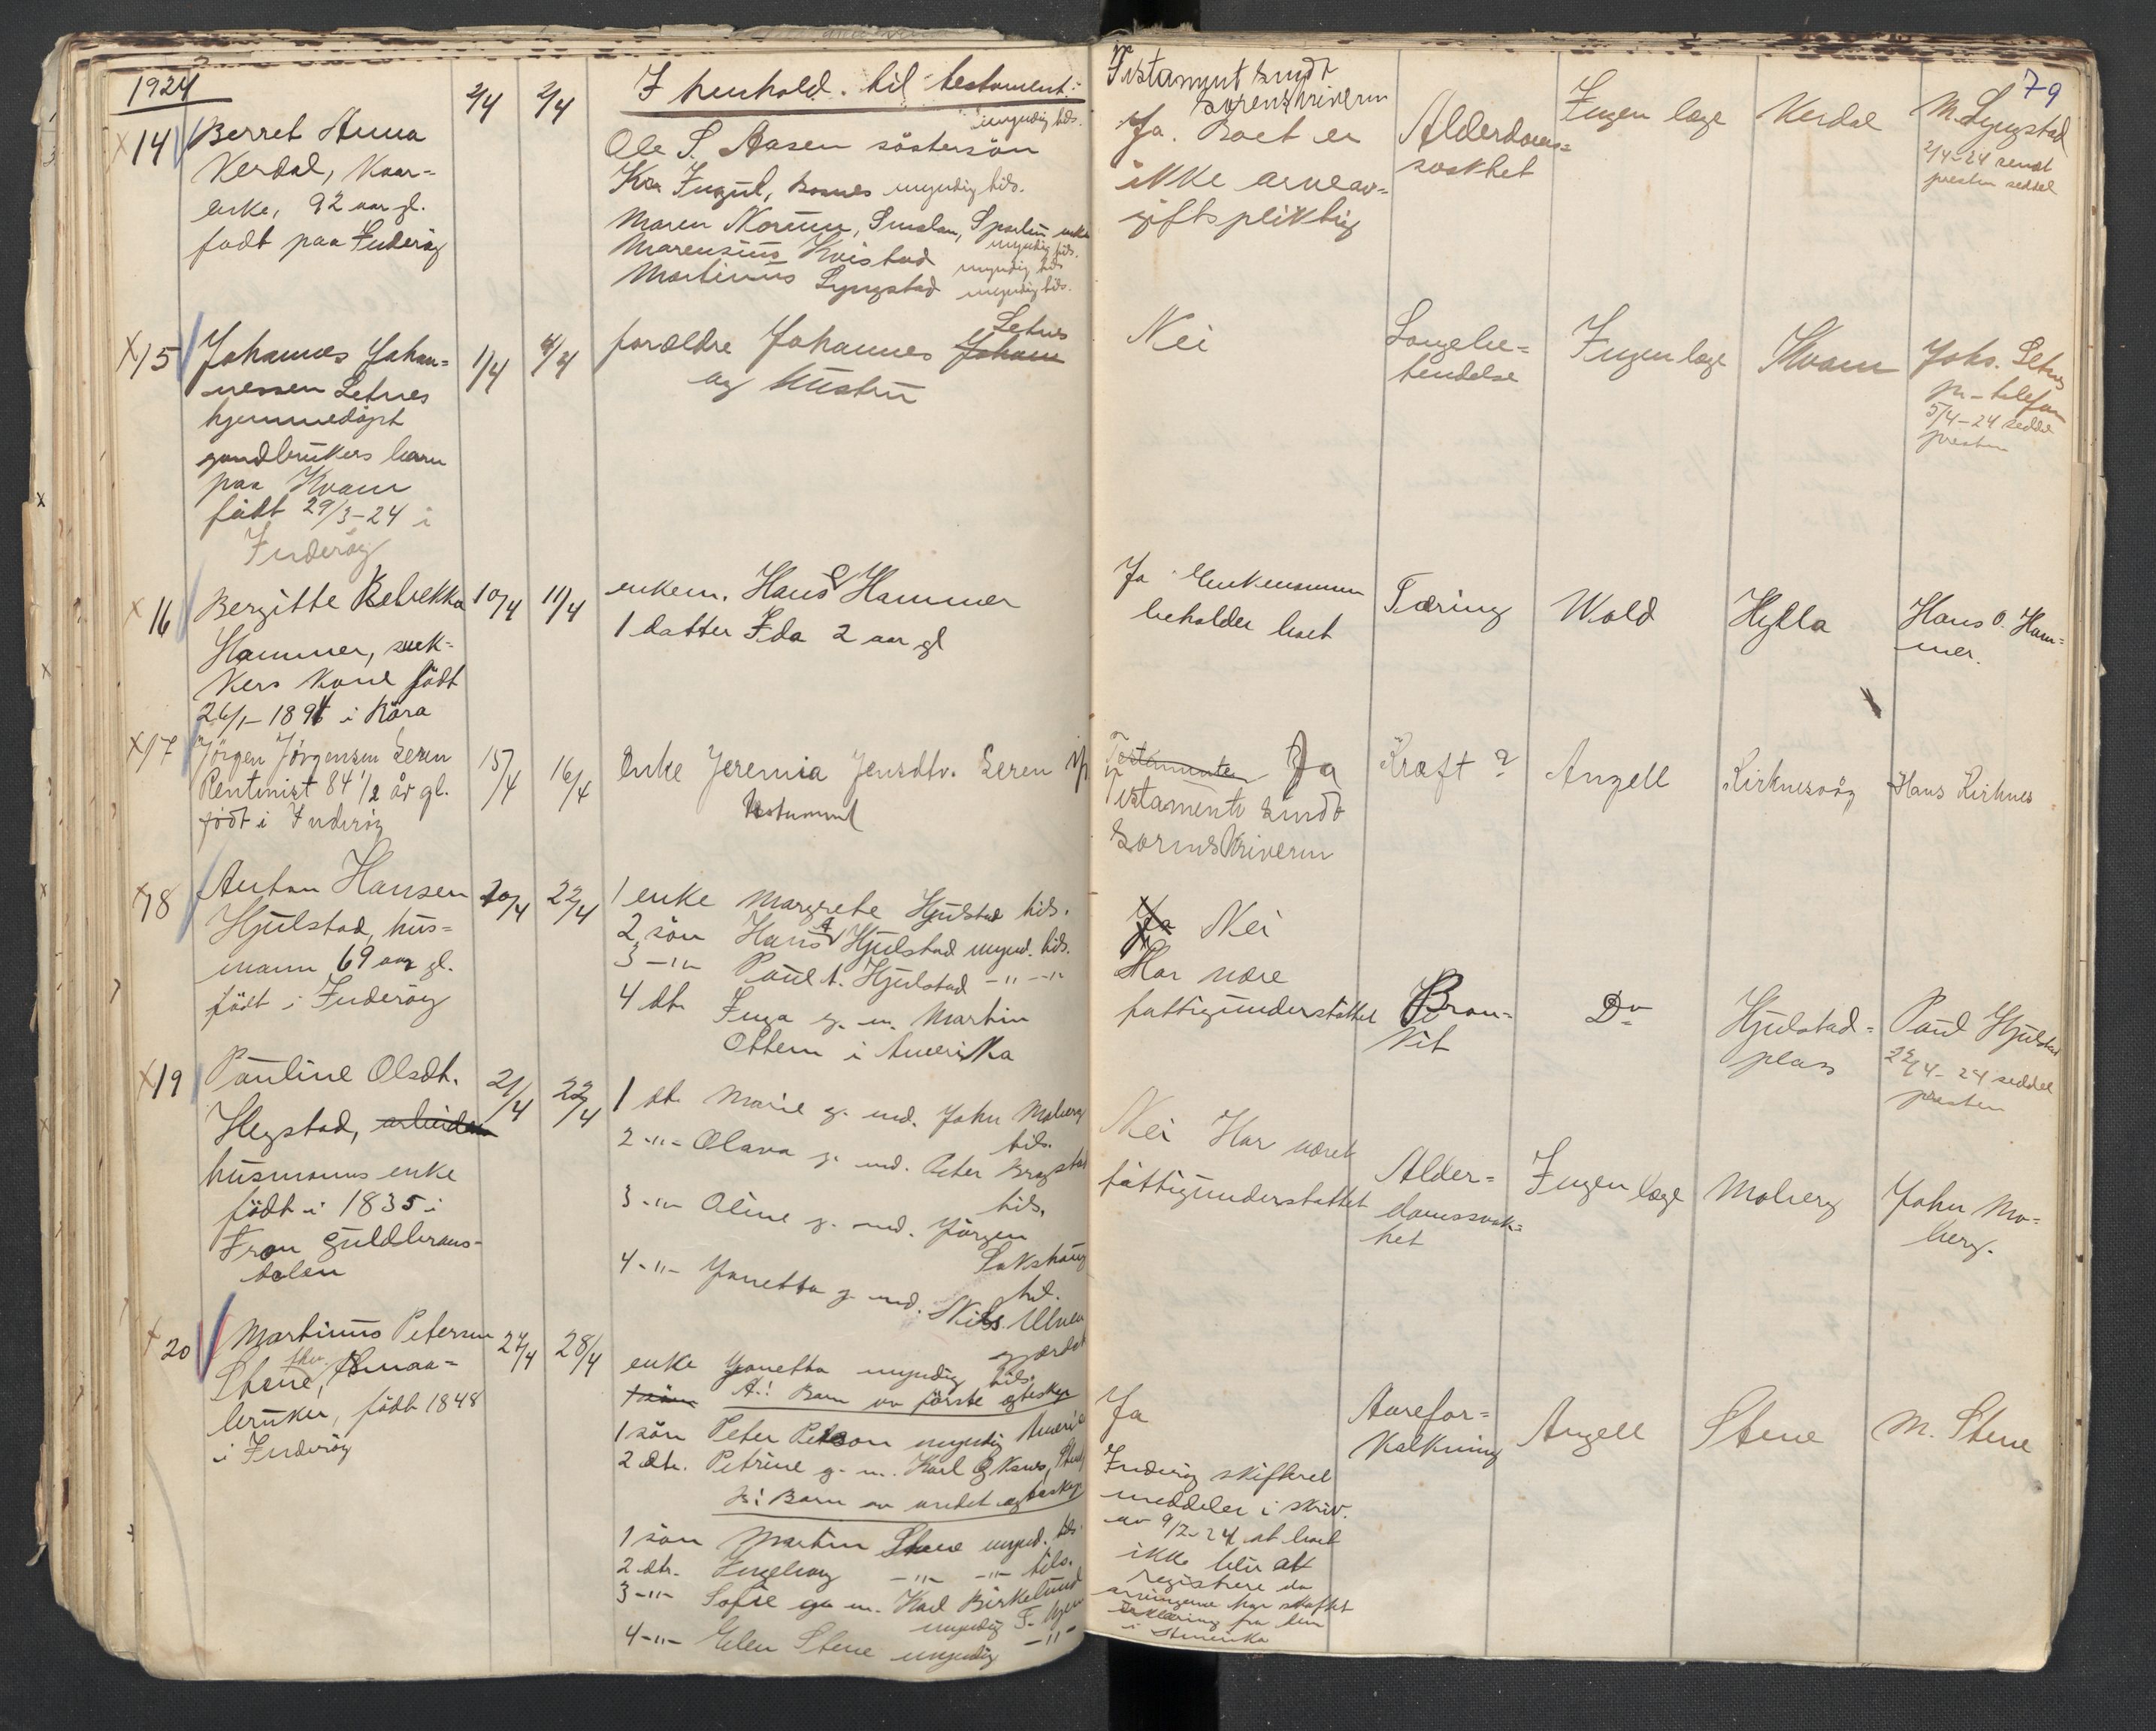 1924
79
14
Berret Anna
Verdal, Kaar-
enke, 92 aar gl.
født paa Inderøy
2/4
2/4
I henhold. til testament:
myndig tids.
Ole S. Aasen søstersön
myndig tids.
Maren
myndig tids.
Marensius Kvistad myndig tids
Martinus Lyngstad myndig tids.
Testament sendt
sorenskriveren
Ja. Boet er
ikke arveav-
giftspliktig
Alderdoms-
svakhet
Ingen læge
Verdal
M. Lyngstad
2/4-24 sendt
presten seddel
15
Johannes Johan-
nessen Letnes
hjemmedøpt
gaardbrukers barn
paa Kvam
født 29/3-24 i
Inderøy
1/4
4/4
forældre Johannes Letnes
og hustru
Nei
Lungebe-
tendelse
Ingen læge
Kvam
Johs. Letnes
pr. telefon
5/4-24 seddel
presten
16
Bergitte Rebekka
Hammer, snek-
kers kone født
26/1-1894 i Röra
10/4
11/4
enkem. Hans O Hammer
1 datter Ida 2 aar gl
Ja Enkemannen
beholder boet
Tæring
Wold
Hylla
Hans O. Ham-
mer.
17
Jörgen Jörgensen Leren
Rentenist 84 1/2 år gl.
födt i Inderöy
15/4
16/4
Enke Jeremia Jensdtr. Leren if
testament
Testamenter Ja
Testamente sendt
Sorenskriveren
Kræft ?
Angell
Kirknesvåg
Hans Kirknes
18
Anton Hansen
Hjulstad, hus-
mann 69 aar gl.
födt i Inderöy
20/4
22/4
1 enke Margrete Hjulstad tids.
2 sön Hans A Hjulstad mynd. tids.
3 -"- Paul A. Hjulstad -"- -"-
4 dt. Inga g. m. Martin
Ottem i Amerika
Ja Nei
Har være
fattigunderstöttet
Bron-
kit
Do
Hjulstad-
plas
Paul Hjulstad
22/4-24 seddel
presten
19
Pauline Olsdt.
Hegstad, arbeider
husmanns enke
födt i 1835 i
Fron Guldbrans-
dalen
21/4
22/4
1 dt. Marie g. md. John Moberg
tids.
2 -"- Olava g. md. Peter
tids.
3 -"- Oline g. md. Jörgen
Sakshaug
tid.
4 -"- Janetta g. md. Nils
Nei Har været
fattigunderstøttet
Alder-
domssvak-
het
Ingen læge
Moberg
John Mo-
berg.
20
Martinus Petersen
Stene, fhv. smaa-
bruker, födt 1848
i Inderöy
27/4
28/4
enke Janetta myndig tids.
A.: Barn av förste egteskap
1 sön Peter Peterson myndig Amerika
2 dtr. Petrine g. m. Karl
B: Barn av andet egteskap
1 sön Martin Stene mynd. tids.
2 dtr. Ingeborg -"- -"- tids.
3 -"- Sofie g. m. Karl Birkelund
myndig
4 -"- Elen Stene myndig -"-
Ja
Inderøy skifteret
meddeler i skriv.
av 9/2-24 at boet
ikke blir at
registrere da
arvingerne har skaffet
erklæring fra
i Amerika
Aarefor-
kalkning
Angell
Stene
M. Stene